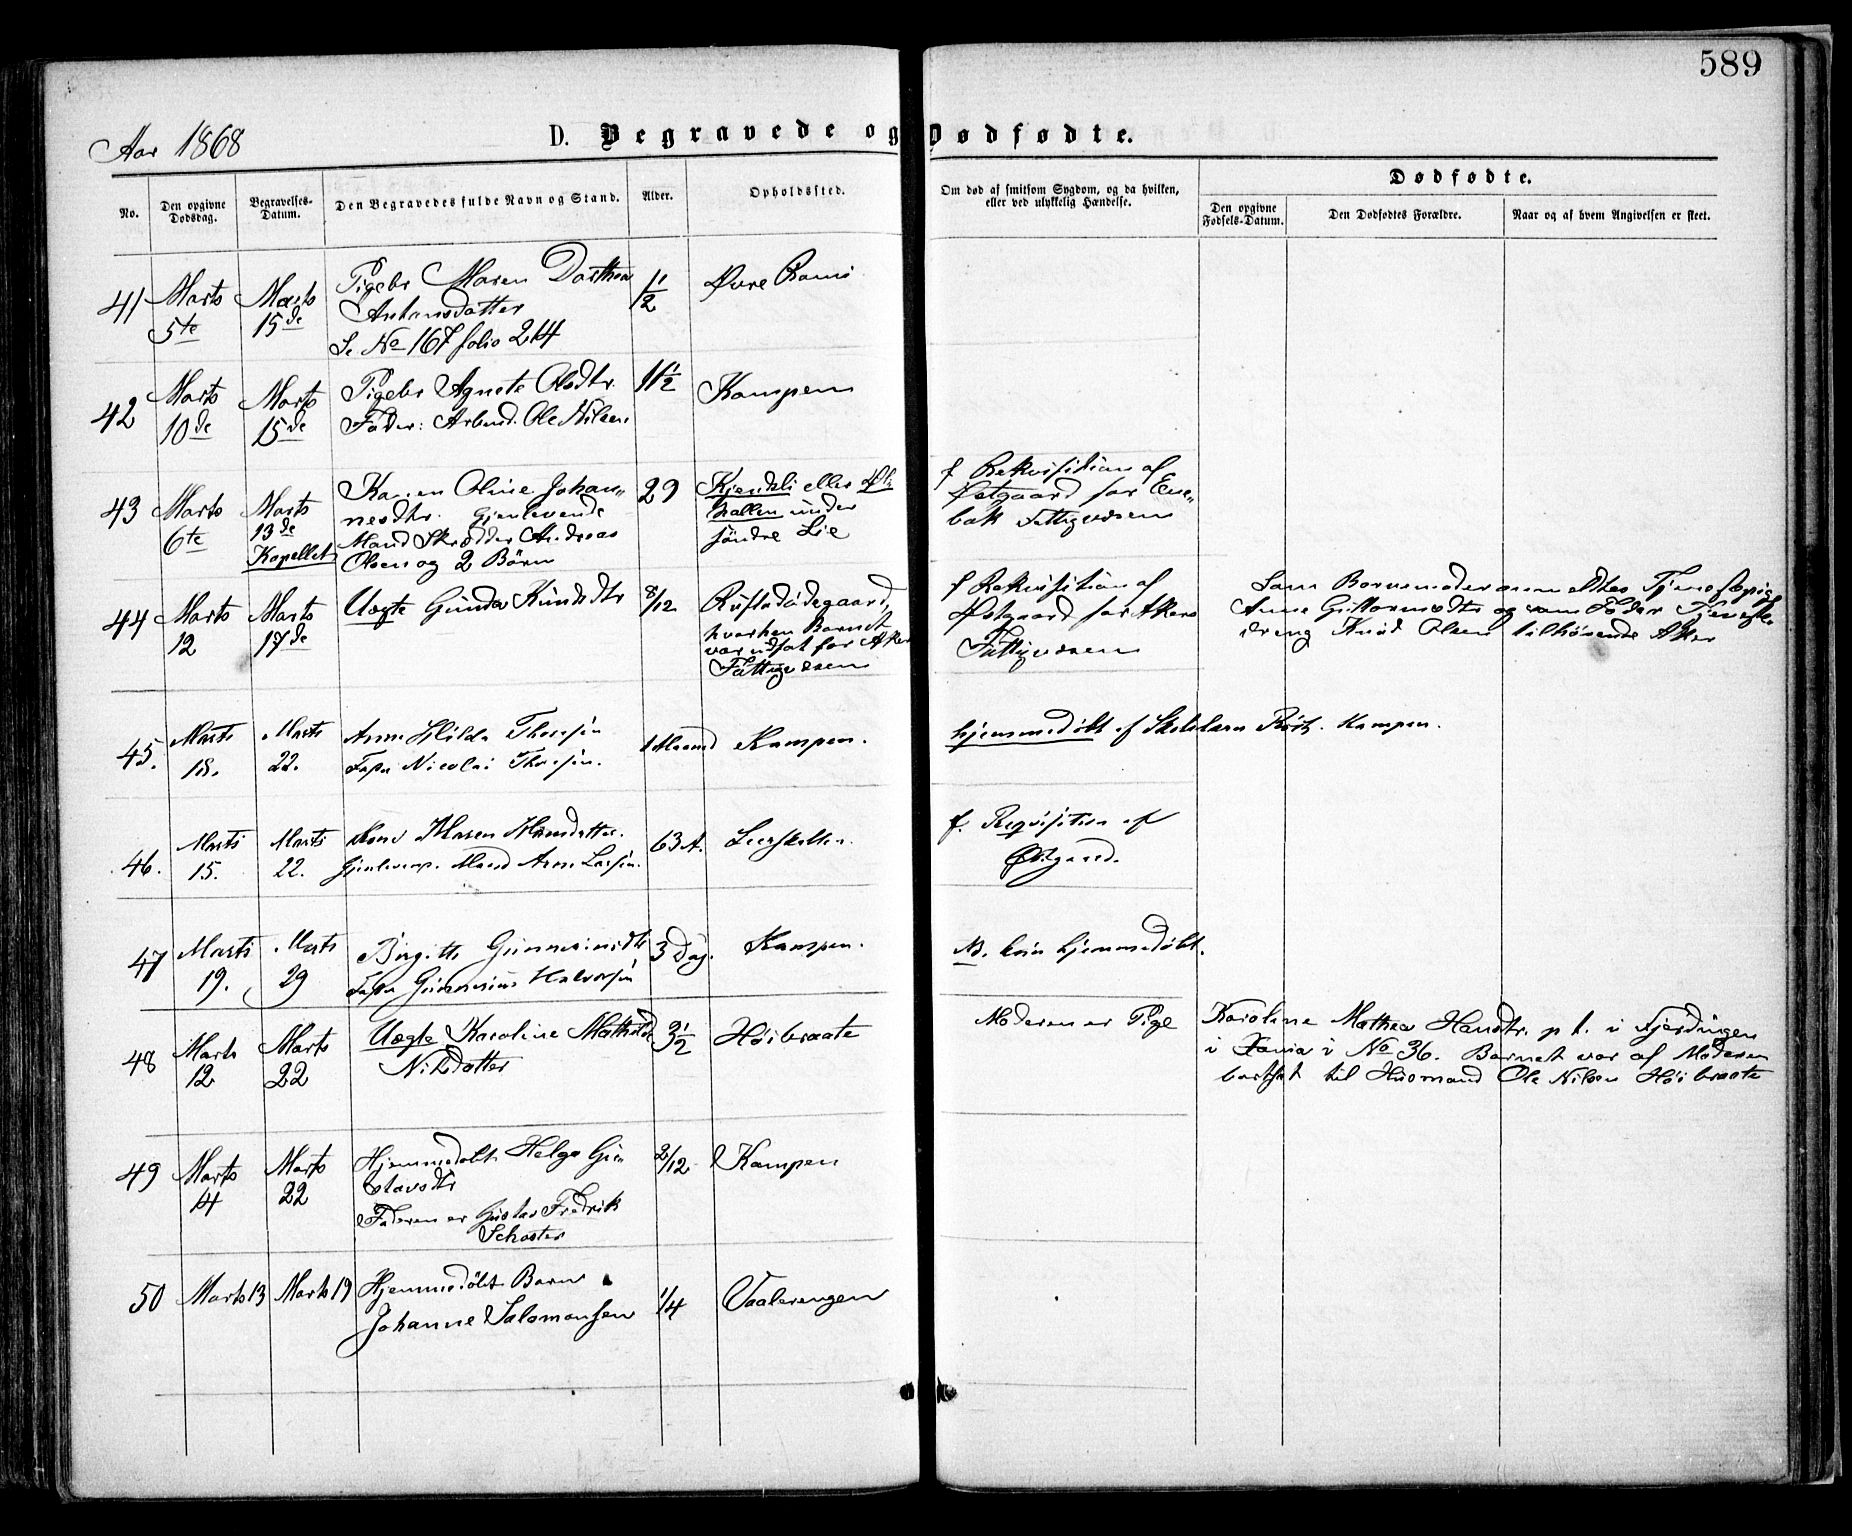 589
Aar 1868
D. Begravede og Dødfødte.
No.
Den opgivne Dødsdag.
Begravelses-Datum.
Den Begravedes fulde Navn og Stand.
Alder.
Opholdssted.
Om død af smitsom Sygdom, og da hvilken, eller ved ulykkelig Hændelse.
Dødfødte.
Den opgivne Fødsels-Datum.
Den Dødfødtes Forældre.
Naar og af hvem Angivelsen er skeet.
41 Marts 5te Marts 15de Pigebr Maren Dorthea 1/2 Øvre
Antonsdatter
Se No 167 folio 214
42 Marts 10de Marts 15de Pigebr Agnete Olsdtr. 11 1/2 Kampen
Fader: Arbmd. Ole Nilsen
43 Marts 6te Marts 13de Kapellet Karen Oline Johan„ 29 Kjendsli eller
nesdtr. Gjenlevende hallen under
Mand Skrædder Andreas søndre Lie
Olsen og 2 Børn
f Rekvisition af
Østgaard for Ene„
bak Fattigvæsen
44 Marts 12 Marts 17de Uægte Gunda Knudsdtr 8/12 Rustadødegaard,
hvorhen Barnet
var udsat for Aker
Fattigvæsen
f Rekvisition af
Østgaard for Akers
Fattigvæsen
Som Barnemoder Tjenestepige
Anne Guttormsdtr og som Fader Tjeneste
dreng Knud Olsen tilhørende Aker
45. Marts 18. Marts 22. Anna Hilda Thorsen 1 Maaned Kampen.
Fader Nicolai Thorsen.
hjemmedøbt af Kampen.
46. Marts 15. Marts 22. Kone Maren Hansdatter. 63 A. Leerskallen.
Gjenlev. Mand Arne Larsen.
f. Reqvisition af
Østgaard.
47 Marts 19. Marts 29 Birgitte Gunneriusdtr 3 Dag. Kampen.
Fader Gunnerius Halvorsen
NB. hjemmedøbt.
48 Marts 12 Marts 22 Uægte Karoline Mathilde 3 1/2 Høibraate
Nilsdatter
Moderen er Pige
Karoline Mathea Hansdtr. p t. i Fjerdingen
i Xania i No 36. Barnet var af Moderen
bortsat til Husmand Ole Nilsen Høibraate
49 Marts 4 Marts 22 Hjemmedøbt Helga Gu„ 2/12 Kampen
stavsdtr
Faderen er Gustav Fredrik
Schøster
50 Marts 13 Marts 19 Hjemmedøbt Barn 1/4 Vaalerengen
Johanne Salomonsen